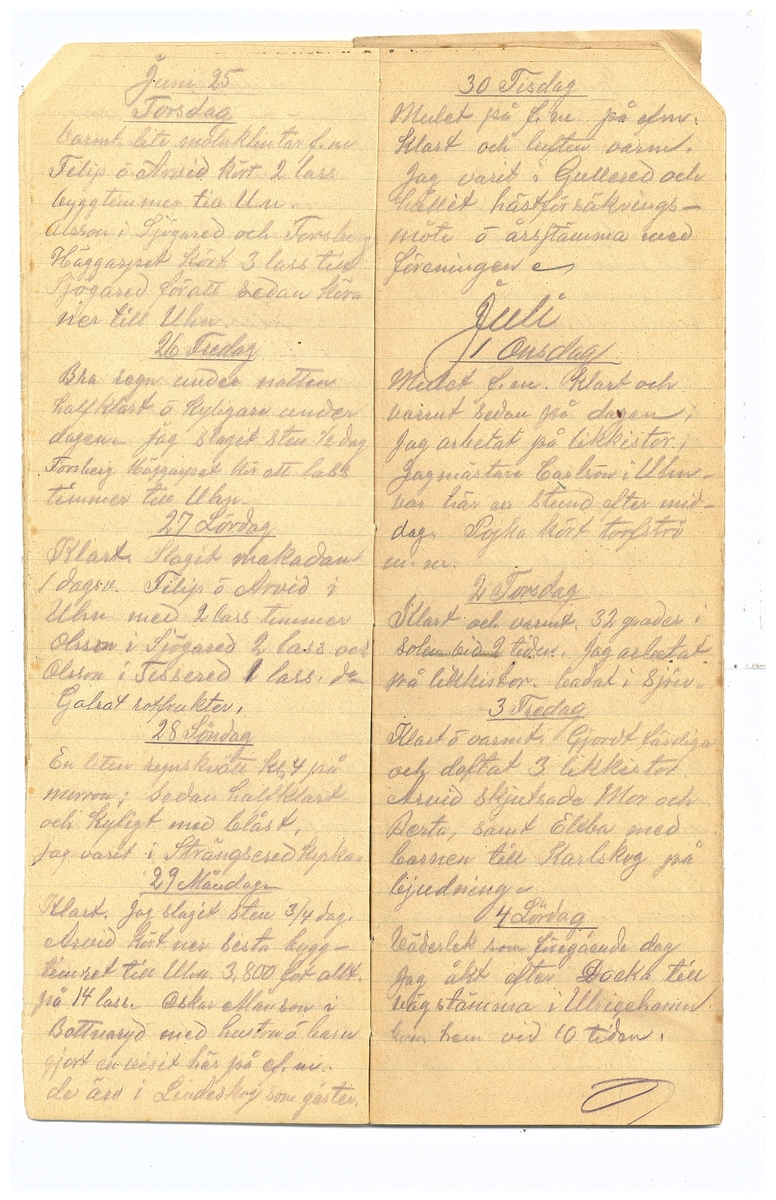 Juni 25
Torsdag
Varmt lite molnklintar f.m
Filip ö Arvid kört 2 lass
byggtimmer till Uhn.
Olsson i Sjögared och Forsberg
Häggarpet kört 3 lass till
Sjögared för att sedan köra
ner till Uhn.
26 Fredag
Bra regn under natten
halfklart ö kyligare under
dagen. jag slagit sten 1/2 dag
Forsberg Häggarpet kör ett lass
timmer till Uhn.
27 Lördag
Klart. Slagit makadam
1 dagsv. Filip ö Arvid i
Uhn med 2 lass timmer
Olsson i Sjögared 2 lass och
Olsson i Tissered 1 lass. de
Galrat rotfrukter.
28 Söndag
En liten regnskvätt kl. 4 på
morron; sedan halfklart
och kyligt med blåst.
jag varit i Strängsered kyrka.
29 Måndag
Klart. Jag slagit sten 3/4 dag.
Arvid kört ner sista bygg-
timret till Uhn. 3,800 fot allt.
på 14 lass. Oskar Manson i
Bottnaryd med hustru ö barn
gjort en visit här på ef.m.
de äro i Lindeskog som gäster.
30 Tisdag
Mulet på f.m. på efm.
Klart och luften varm.
Jag varit i Gullered och
hållit hästförsäkrings-
möte ö årsstämma med
föreningen
Juli
1 Onsdag
Mulet f.m. Klart och
varmt sedan på dagen;
Jag arbetat på likkistor;
Jagmästare Carlson i Uhn-
var här en stund efter mid-
dag. Pojka kört torfströ
m.m.
2 Torsdag
Klart och varmt. 32 grader i
solen vid 2 tiden. Jag arbetat
på likkistor. badat i sjön.
3 Fredag
Klart ö varmt. Gjordt färdiga
och doftat 3 likkistor.
Arvid skjutsade Mor och
Berta, samt Ebba med
barnen till Karlskog på
bjudning
4 Lördag
Väderlek som föregående dag
Jag åkt efter Docka till
vägstämma i Ulricehamn.
kom hem vid 10 tiden.